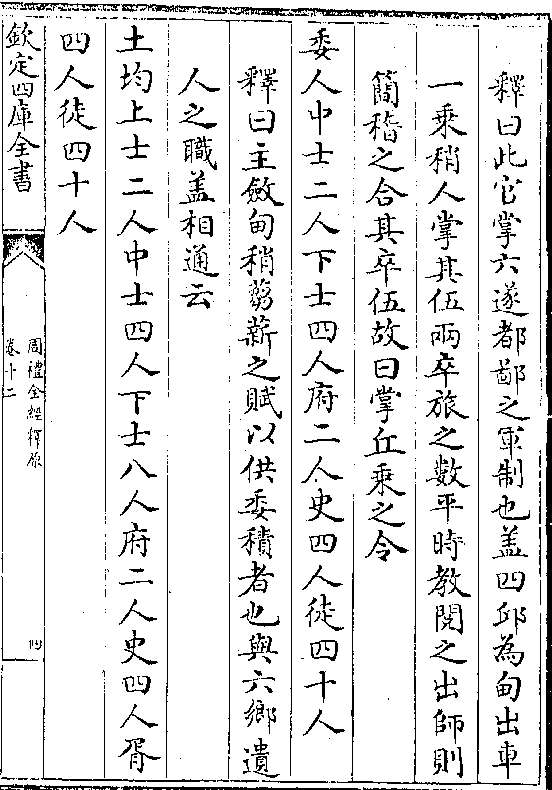 釋曰此官掌六遂都鄙之軍制也盖四邱為甸出車
一乘稍人掌其伍兩卒旅之數平時教閱之出師則
簡稽之合其卒伍故曰掌丘乘之令
委人中士二人下士四人府二人史四人徒四十人
釋曰主斂甸稍蒭薪之賦以供委積者也與六鄉遺
人之職盖相通云
土均上士二人中士四人下士八人府二人史四人胥
四人徒四十人
欽定四庫全書
周禮全經釋原
卷十二
四